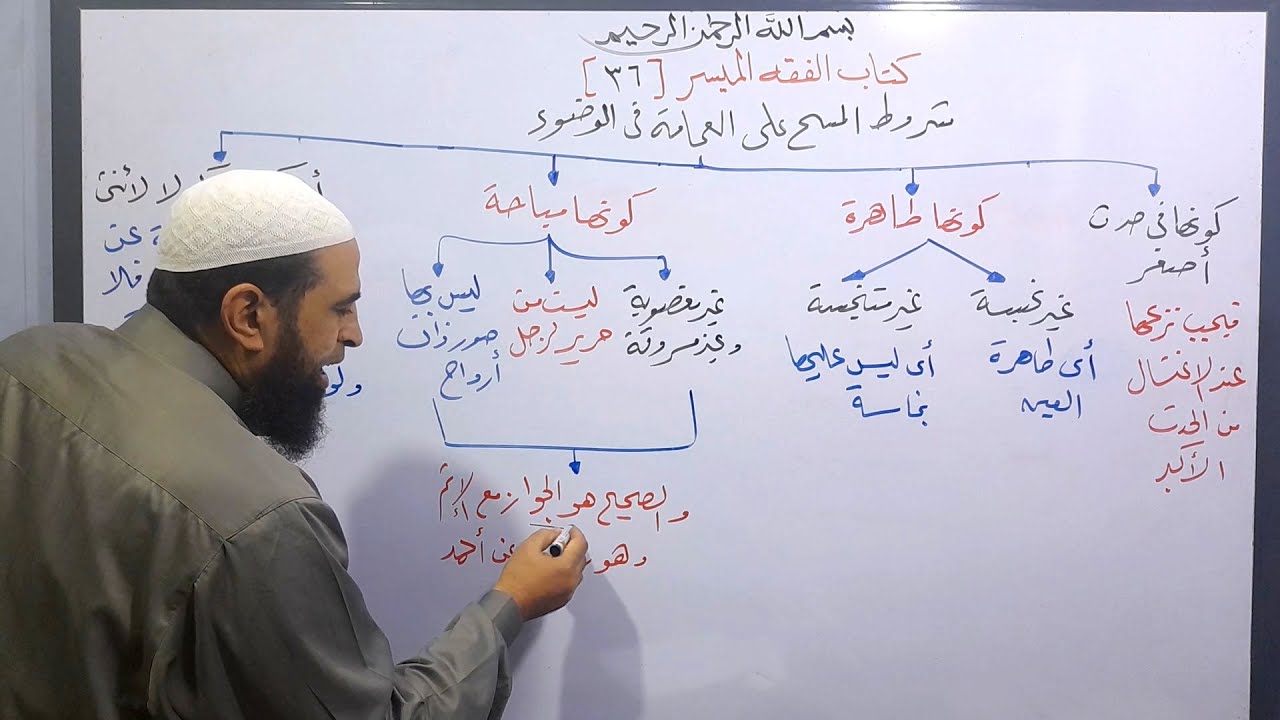 بسم الله الرحمن الرحيم
كتاب الفقه الميسر [٣٦]
شروط المسح على العمامة فى الوضوء
كونها فى حدث
أصغر
فيجب نزعها
عند الاغتسال
من الحدث
الأكبر
كونها طاهرة
غير نجسة
أى طاهرة
العين
غير متنجسة
أى ليس عليها
نجاسة
كونها مباحة
غير مغصوبة
وغير مسروقة
ليست من
حرير لرجل
ليس بها
صور ذوات
أرواح
والصحيح هو الجواز مع الإثم
وهو عن أحمد
لا لأنثى
عن
فلا